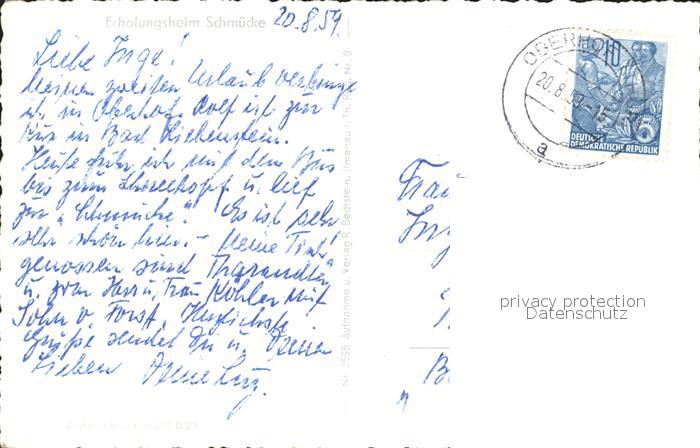 Erholungsheim Schmücke
20.8.59
Liebe Inge!
Meinen zweiten Urlaub verbringe
ich in Oberhof. Rolf ist zur
Kur in Bad Liebenstein.
Heute fuhr ich mit dem Bus
bis zum Schneekopf u. lief
zur "Schmücke". Es ist sehr
sehr schön hier. – Meine Tisch-
genossen sind Tharandter
u. zwar Herr u. Frau Köhler mit
Sohn v. Forst. Herzlichste
Grüße sendet Dir u. Deinen
Lieben Deine
Nr. 3595 Aufnahme u. Verlag R. Bechstein, Ilmenau i. Th.
OBERHO
20.8.59-15
a
10
5
DEUTSCHE
DEMOKRATISCHE REPUBLIK
Frau
privacy protection
Datenschutz